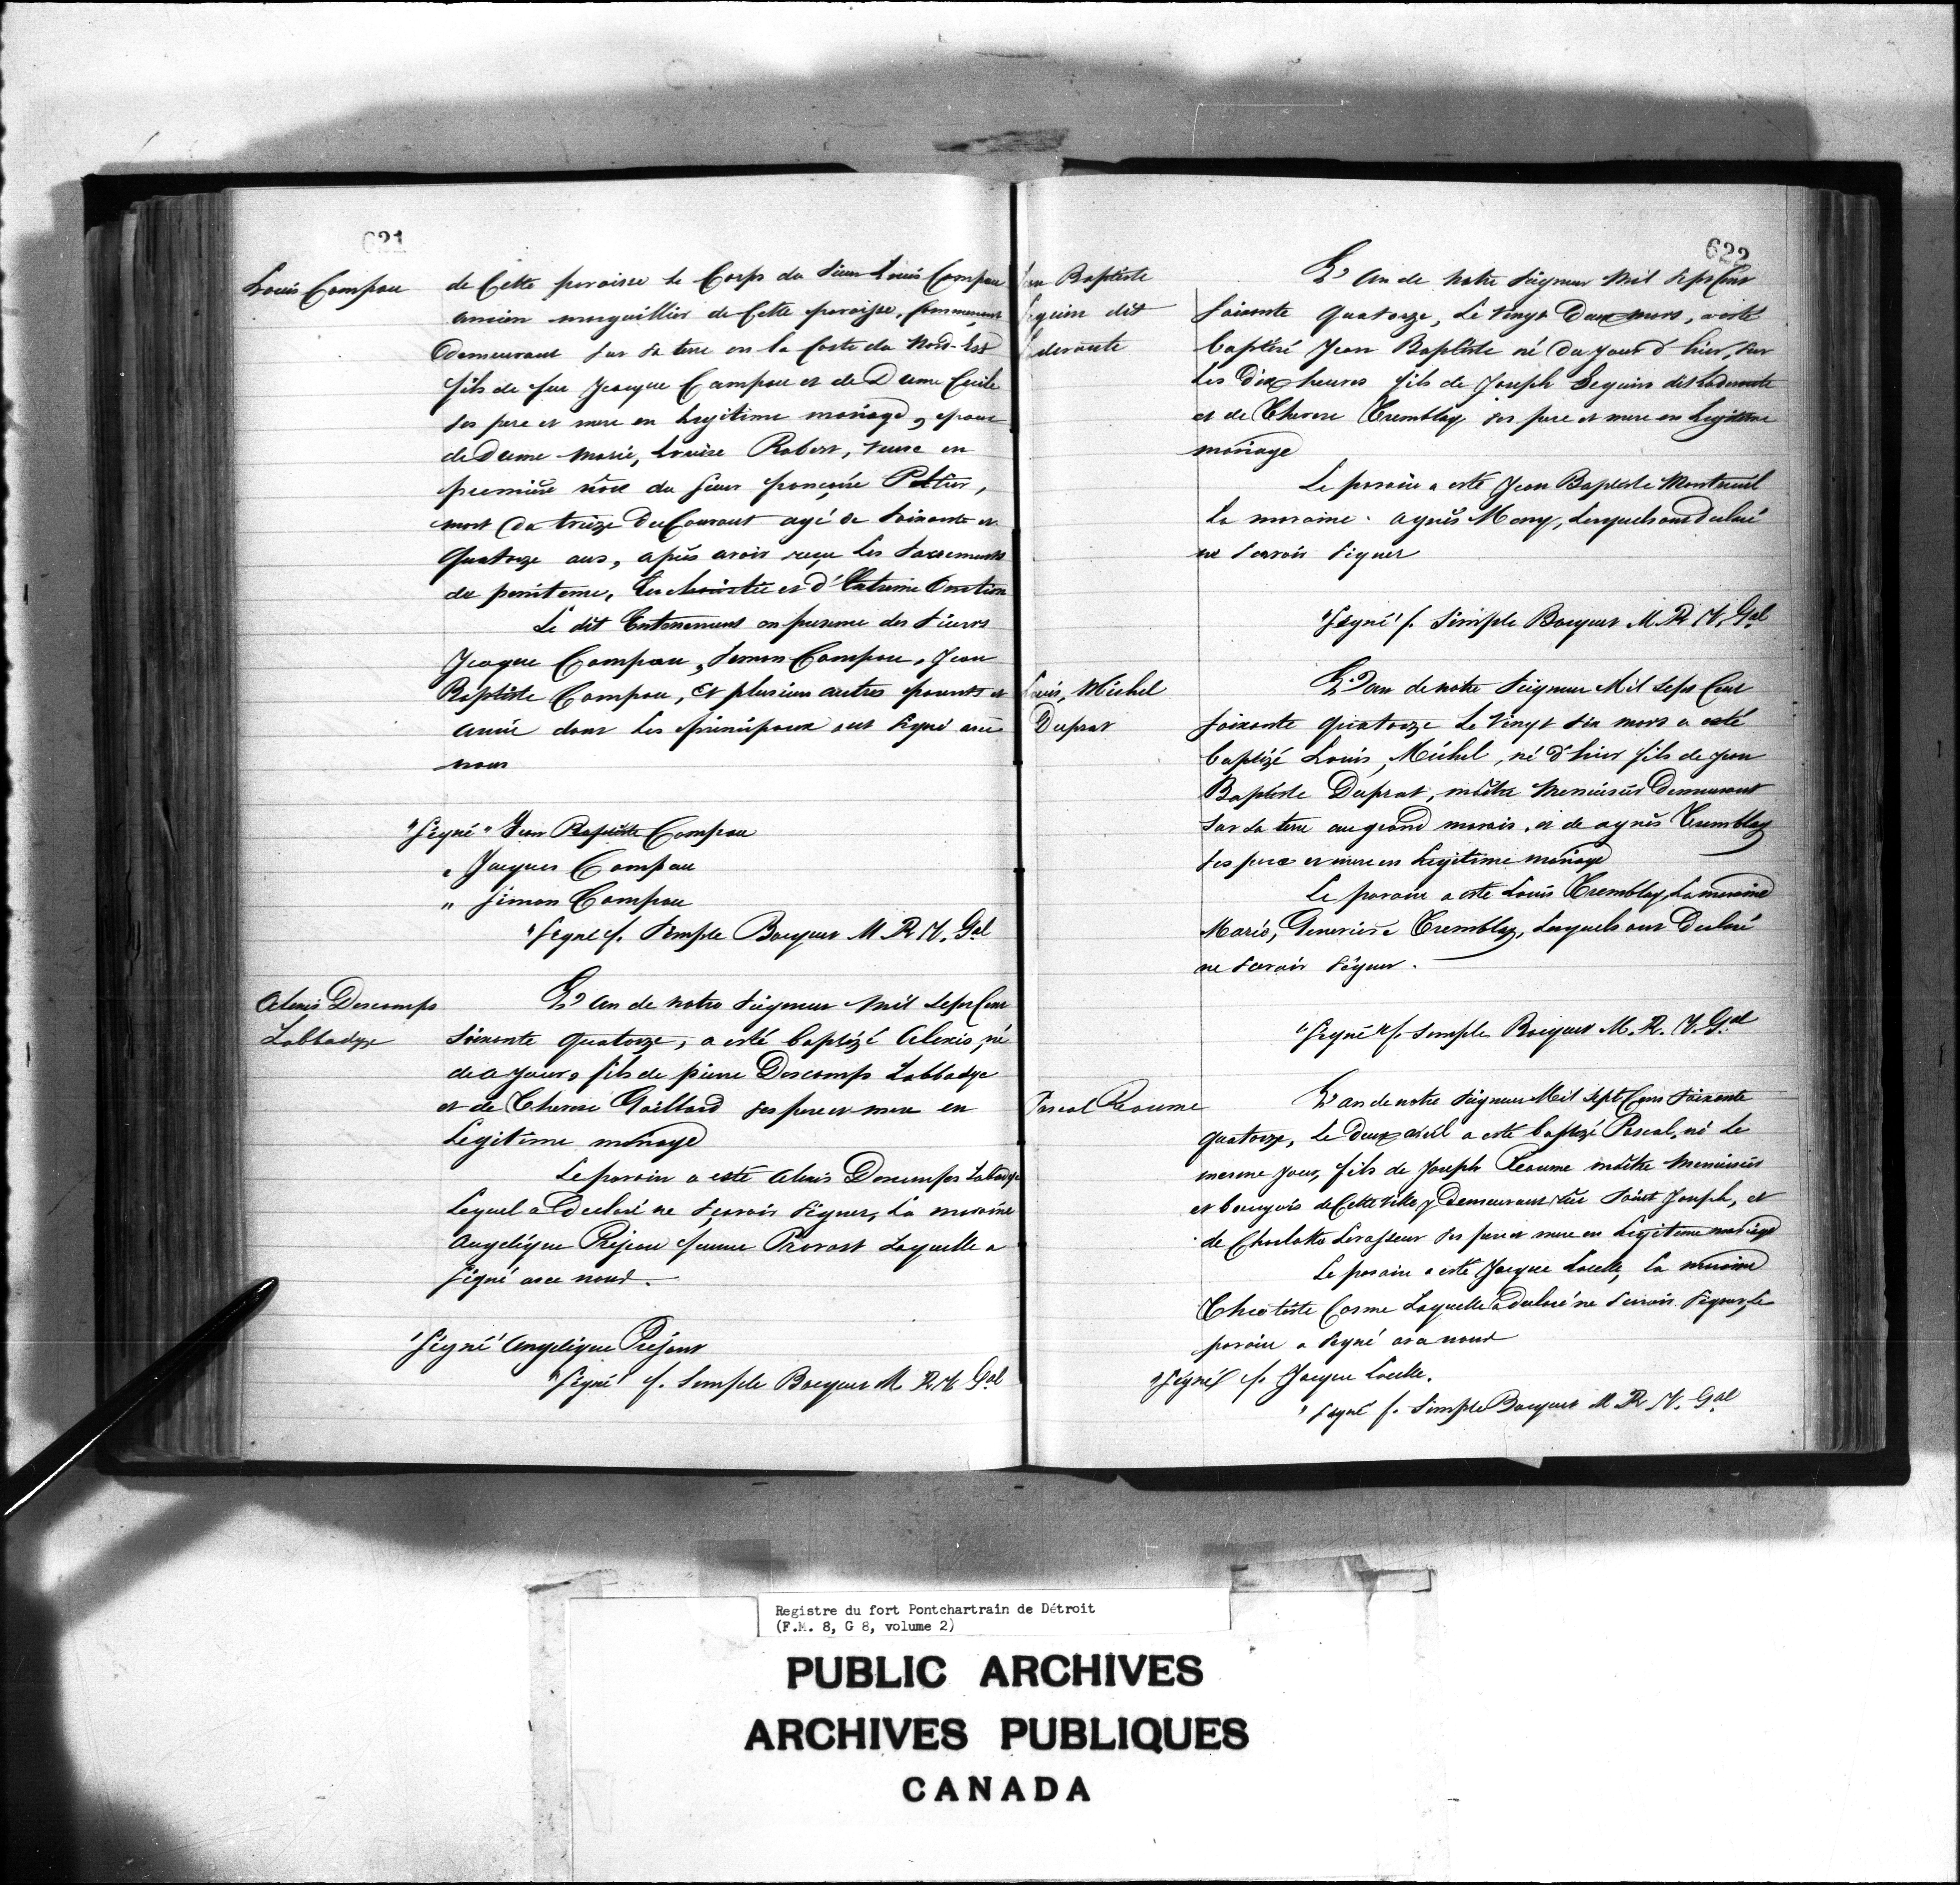 621
Louis Campau
de Cette paroisse le Corps du Sieur Louis Campau
ancien marguillier de Cette paroisse,
Demeurant sur sa terre en la Coste du Nord-Est
fils de feu Jacque Campau et de Dame Cecile
ses pere et mere en legitime mariage, epoux
de Dame Marie, Louise Robert, veuve en
premiere nôce du Sieur françois Peltier,
mort du treize du Courant agé de Soixante et
Quatorze ans, après avoir reçu les Sacrements
de penitence, Eucharistie et d'Extreme Onction
Le dit Enterrement en presence des Sieurs
Jacque Campau, Simon Campau, Jean
Baptiste Campau, Et plusieurs autres parents et
amis dont les principaux ont Signé avec
nous
"Signé" Jean Baptiste Campau
" Jacques Campau
" Simon Campau
"Signé f. Simple Bocquet M. R. V. Gal
Alexis Descomps
Labbadye
L'an de notre Seigneur Mil Sept Cent
Soixante Quatorze, a esté baptizé Alexis, né
de ce jour, fils de pierre Descomps Labbadye
et de Therese Gaillard ses pere et mere en
Legitime mariage
Le parain a esté Alexis Descomps Labadye
Lequel a Declaré ne Sçavoir Signer, La maraine
Angelique Réjeau femme Prevost Laquelle a
Signé avec nous.
"Signé" Angelique Réjeau
"Signé" f. Simple Bocquet M. R. V. Gal
622
Jean Baptiste
Seguin dit
Laderoute
L'An de Notre Seigneur Mil Sept Cent
Soixante Quatorze, Le Vingt Deux mars, a esté
baptisé Jean Baptiste né Du Jour d'hier, sur
Les Dix heures fils de Joseph Seguin dit Laderoute
et de Therese Tremblay ses pere et mere en Legitime
mariage
Le parain a esté Jean Baptiste Montreuil
La maraine Agnès Mony, Lesquels ont declaré
ne Scavoir Signer
"Signé" f. Simple Bocquet M. R. V. Gal
Louis, Michel
Duprat
L'an de notre Seigneur Mil Sept Cent
Soixante Quatorze Le Vingt Six mars a esté
baptizé Louis, Michel, né d'hier fils de Jean
Baptiste Duprat, maître Menuisier Demeurant
Sur sa terre au grand marais, et de agnès Tremblay
ses pere et mere en Legitime mariage
Le parain a esté Louis Tremblay, La maraine
Marie, Genevieve Tremblay, Lesquels ont Declaré
ne Scavoir Signer.
"Signé" f. Simple Bocquet M. R. V. Gal
Pascal Reaume
L'an de notre Seigneur Mil Sept Cent Soixante
Quatorze, Le Deux avril a esté baptizé Pascal, né Le
mesme jour, fils de Joseph Reaume maître Menuisier
et bourgeois de Cette Ville y Demeurant rüe Saint Joseph, et
de Charlotte Levasseur ses pere et mere en Legitime mariage
Le parain a esté Jacque Loselle, La maraine
Cosme Laquelle a declaré ne Scavoir Signer, Le
parain a Signé avec nous
"Signé" f. Jacque Loselle.
"Signé f. Simple Bocquet M. R. V. Gal
Registre du fort Pontchartrain de Détroit
(F.M. 8, G 8, volume 2)
PUBLIC ARCHIVES
ARCHIVES PUBLIQUES
CANADA